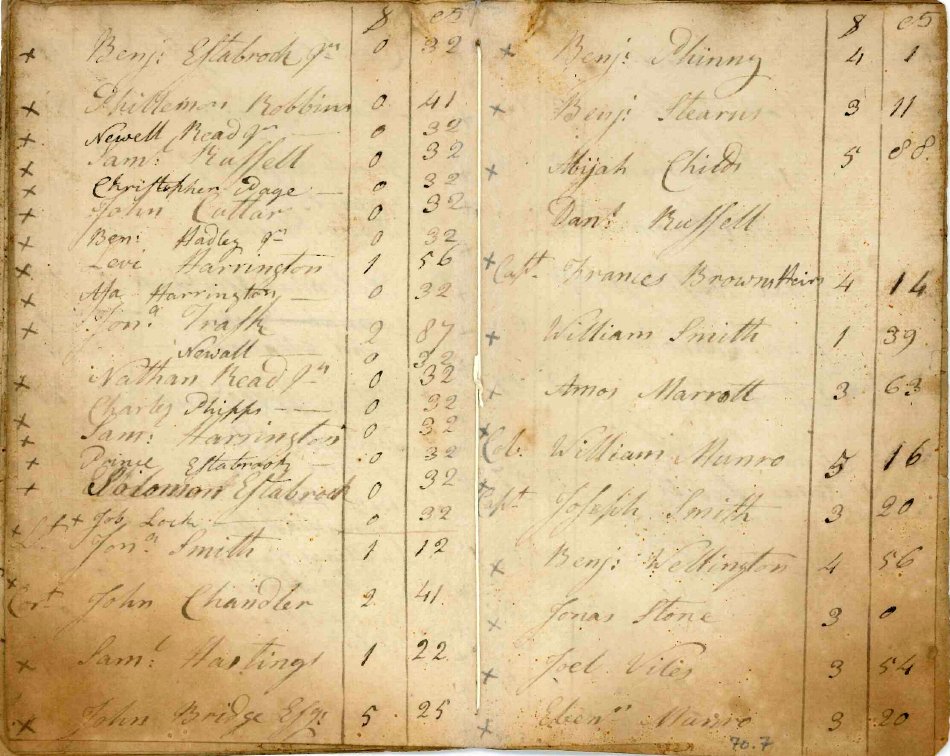 $ cts
x Benj: Estabrook Jun 0 32
x Phillemon Robbins 0 41
x Newell Read Jr 0 32
x Saml. Russell 0 32
x Christopher Page — 0 32
x John Cutlar 0 32
x Ben: Hadley Jn 0 32
x Levi Harrington 1 56
x Asa Harrington — 0 32
x Jona. Trask 2 87
Newall 0 32
x Nathan Read Jun 0 32
x Charles Phipps — — 0 32
x Saml. Harrington 0 32
x Prince Estabrook — 0 32
x Solomon Estabrook 0 32
x Job Lock — 0 32
Jona. Smith 1 12
x John Chandler 2 41
x Saml. Hastings 1 22
x John Bridge Esqr. 5 25
$ cts
x Benj: Phinny 4 1
x Benj: Stearns 3 11
x Abijah Childs 5 88
Danl. Russell
x Capt. Frances Browns Heirs 4 14
x William Smith 1 39
x Amos Marrott 3 63
x Col. William Munro 5 16
x Capt. Joseph Smith 3 20
x Benj: Wellington 4 56
x Jonas Stone 3 0
x Joel Viles 3 54
x Ebenr. Munro 3 20
70.7